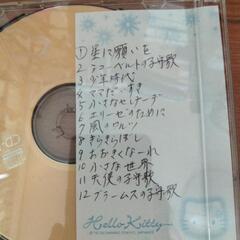 ①星に願いを
2 ラコーベルトの子守歌
3 少年時代
4 ママだいすき
5 小さなセレナーデ
6 エリーゼのために
7 風のワルツ
8 きらきらぼし
9 おおきくなーれ
10 小さな世界
11 天使の子守歌
12 ブラームスの子守歌
Hello Kitty